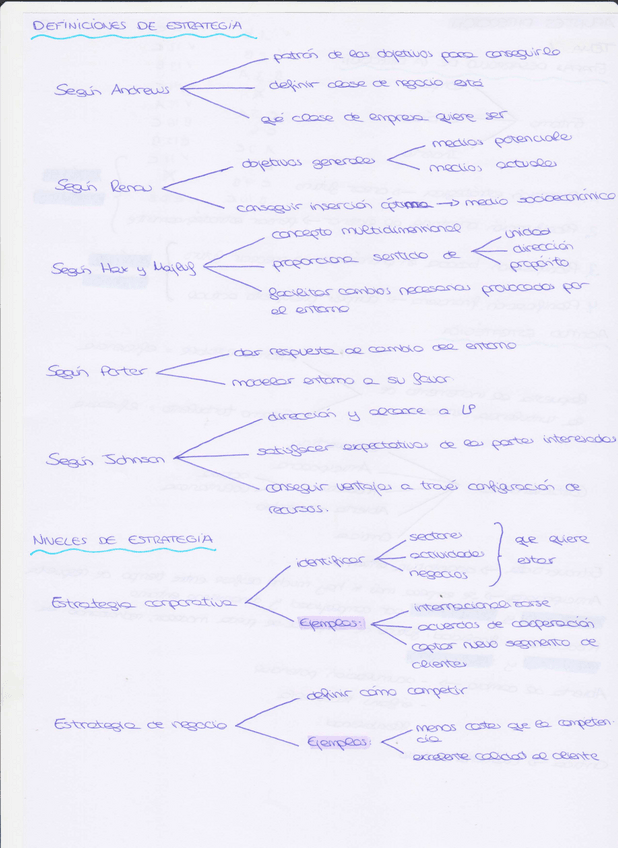 DEFINICIONES DE ESTRATEGIA
Según Andrews
patrón de los objetivos para conseguirlo
definir clase de negocio está
qué clase de empresa quiere ser
Según Renau
objetivos generales
medios potenciales
medios actuales
conseguir inserción óptima → medio socioeconómico
Según Hax y Majluf
concepto multidimensional
proporciona sentido de
unidad
dirección
propósito
facilitar cambios necesarios provocados por
el entorno
Según Porter
dar respuesta al cambio del entorno
modelar entorno a su favor.
Según Johnson
dirección y alcance a LP
satisfacer expectativas de las partes interesadas
conseguir ventajas a través configuración de
recursos.
NIVELES DE ESTRATEGIA
Estrategia corporativa
identificar
sectores
actividades
negocios
que quiere
estar
Ejemplos:
internacionalizarse
acuerdos de cooperación
captar nuevo segmento de
clientes
Estrategia de negocio
definir cómo competir
Ejemplos:
menos costes que la competen-
cia
excelente calidad al cliente